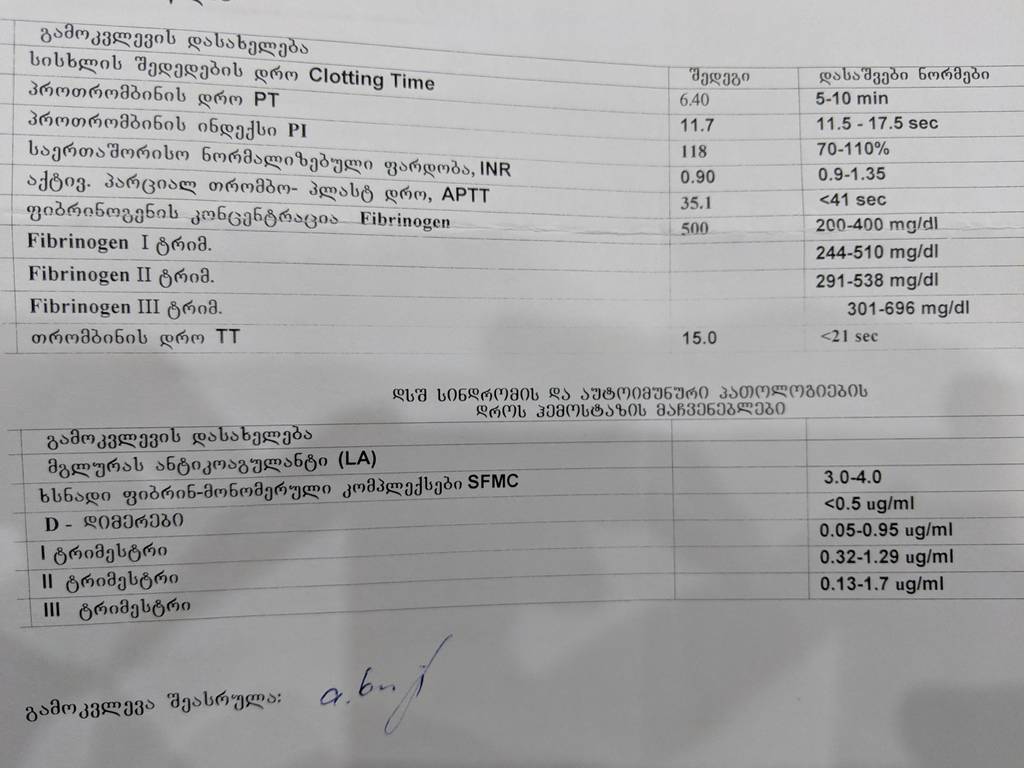 გამოკვლევის დასახელება
შედეგი დასაშვები ნორმები
სისხლის შედედების დრო Clotting Time 6.40 5-10 min
პროთრომბინის დრო PT 11.7 11.5 - 17.5 sec
პროთრომბინის ინდექსი PI 118 70-110%
საერთაშორისო ნორმალიზებული ფარდობა, INR 0.90 0.9-1.35
აქტივ. პარციალ თრომბო- პლასტ დრო, APTT 35.1 <41 sec
ფიბრინოგენის კონცენტრაცია Fibrinogen 500 200-400 mg/dl
Fibrinogen I ტრიმ. 244-510 mg/dl
Fibrinogen II ტრიმ. 291-538 mg/dl
Fibrinogen III ტრიმ. 301-696 mg/dl
თრომბინის დრო TT 15.0 <21 sec
დსშ სინდრომის და აუტოიმუნური პათოლოგიების
დროს ჰემოსტაზის მაჩვენებლები
გამოკვლევის დასახელება
მგლურას ანტიკოაგულანტი (LA)
ხსნადი ფიბრინ-მონომერული კომპლექსები SFMC 3.0-4.0
D - დიმერები <0.5 ug/ml
I ტრიმესტრი 0.05-0.95 ug/ml
II ტრიმესტრი 0.32-1.29 ug/ml
III ტრიმესტრი 0.13-1.7 ug/ml
გამოკვლევა შეასრულა: